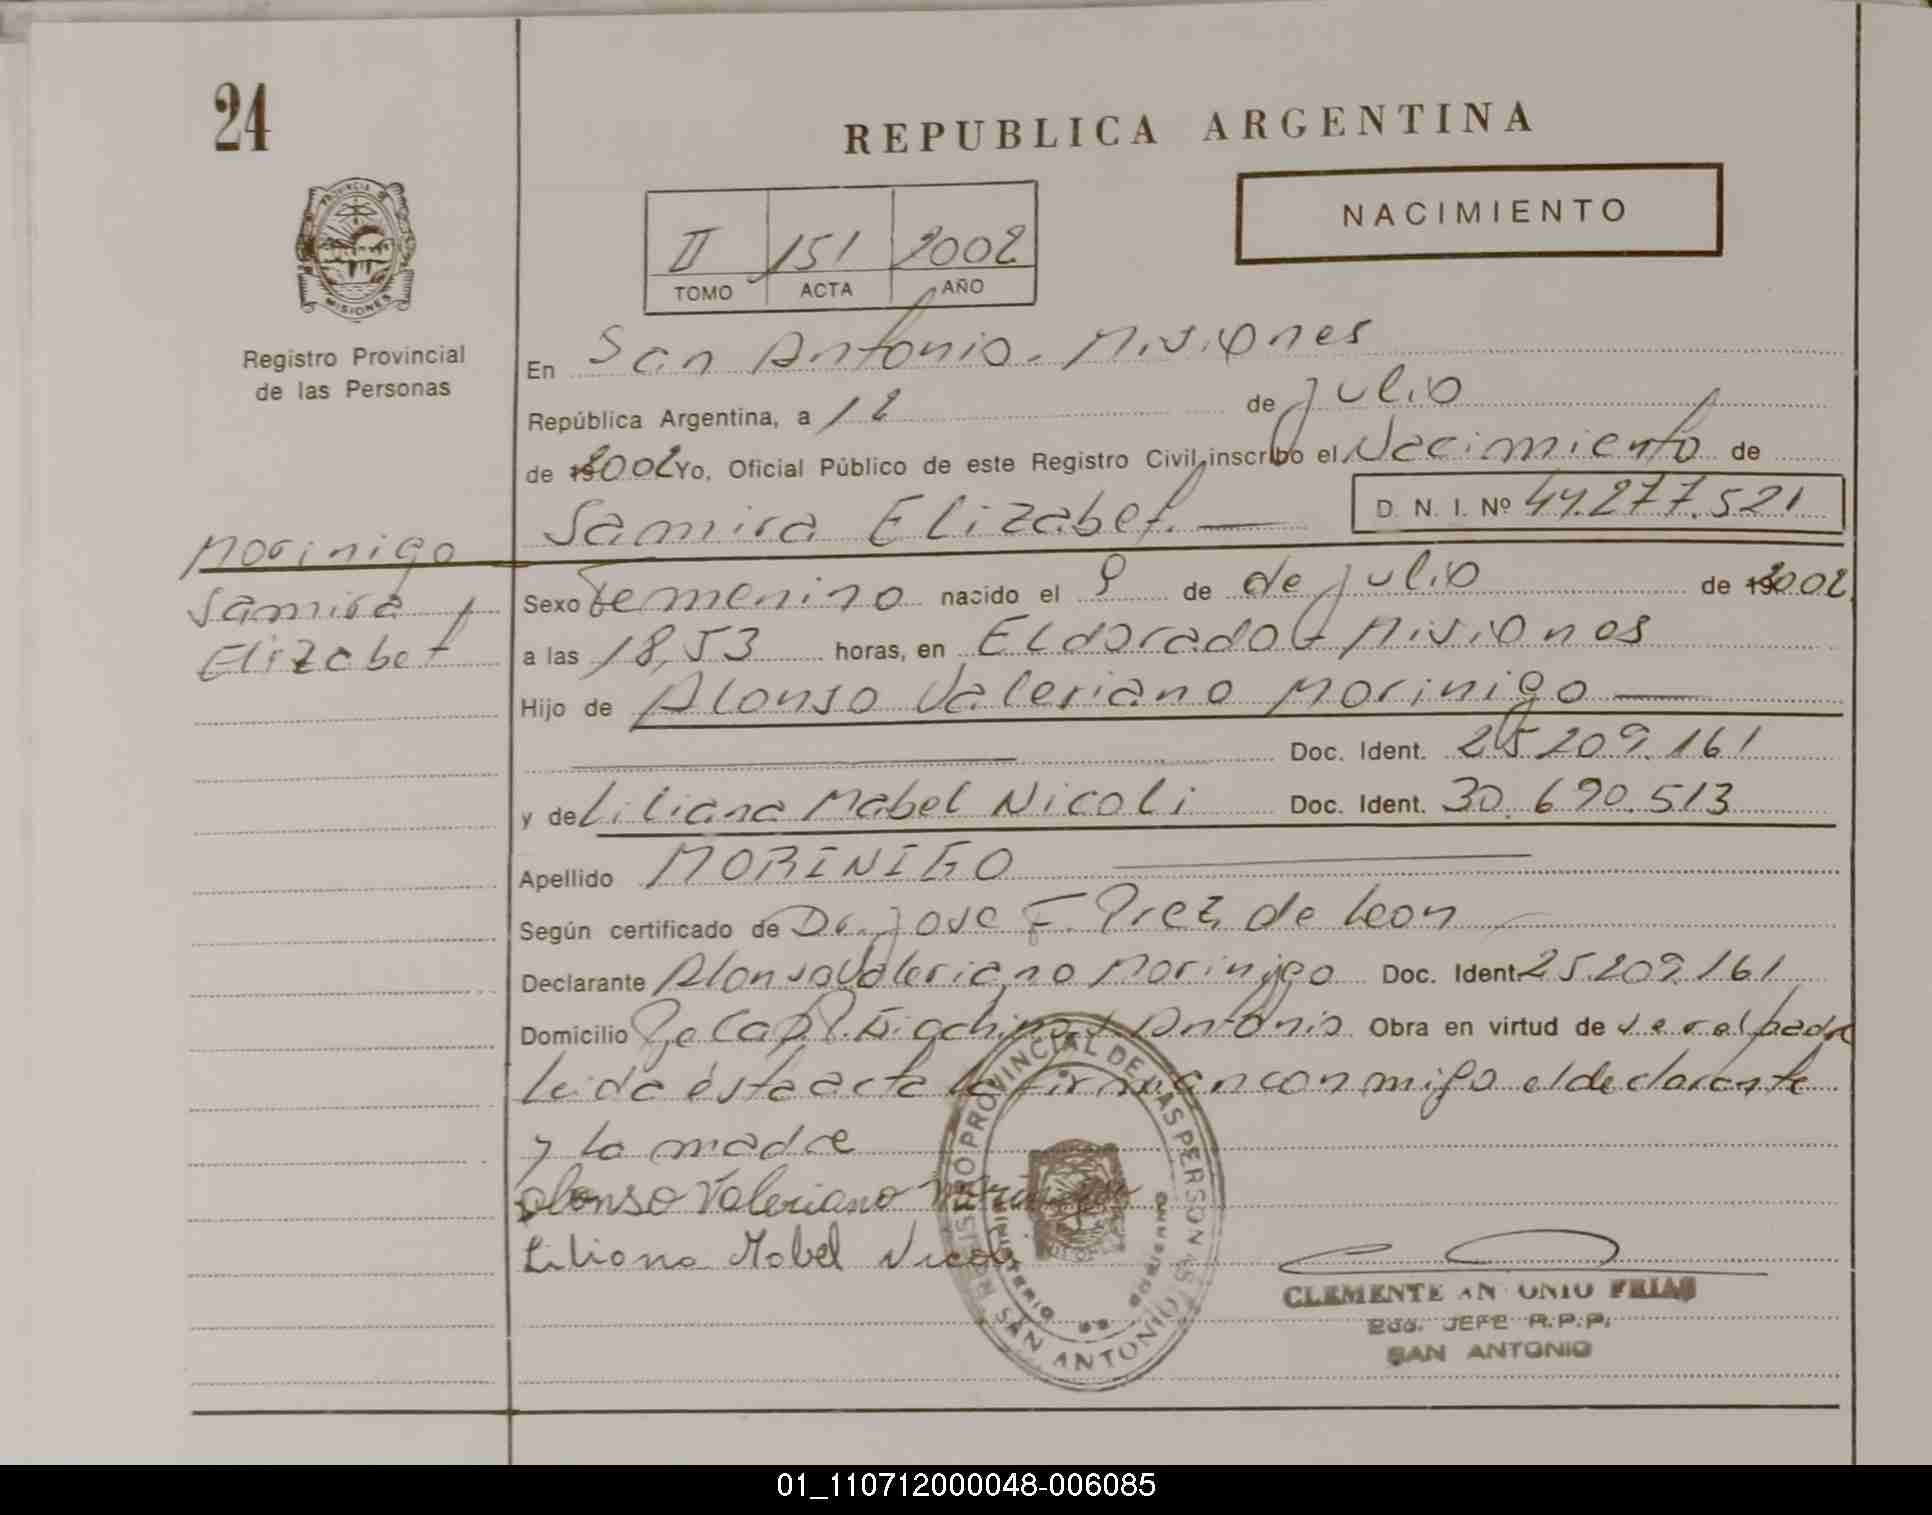 24
REPUBLICA ARGENTINA
NACIMIENTO
II 151 2002
TOMO ACTA AÑO
PROVINCIA DE MISIONES
Registro Provincial
de las Personas
En San Antonio - Misiones
República Argentina, a 12 de Julio
de 2002 Yo, Oficial Público de este Registro Civil, inscribo el Nacimiento de
Samira Elizabet. D. N. I. Nº 44.277.521
Morinigo
Samira
Elizabet
Sexo Femenino nacido el 9 de de Julio de 2002
a las 18,53 horas, en Eldorado - Misiones
Hijo de Alonso Valeriano Morinigo
Doc. Ident. 25.209.161
y de Liliana Mabel Nicoli Doc. Ident. 30.690.513
Apellido MORINIGO
Según certificado de Dr. Jose F. Prez de Leon
Declarante Alonso Valeriano Morinigo Doc. Ident. 25.209.161
Domicilio Antonio Obra en virtud de ser el padre
Leida ésta acta la firman conmigo el declarante
y la madre
Alonso Valeriano Morinigo
Liliana Mabel Nicoli
REGISTRO PROVINCIAL DE LAS PERSONAS
MINISTERIO DE GOBIERNO
SAN ANTONIO
CLEMENTE ANTONIO FRIAS
JEFE R.P.P.
SAN ANTONIO
01_110712000048-006085